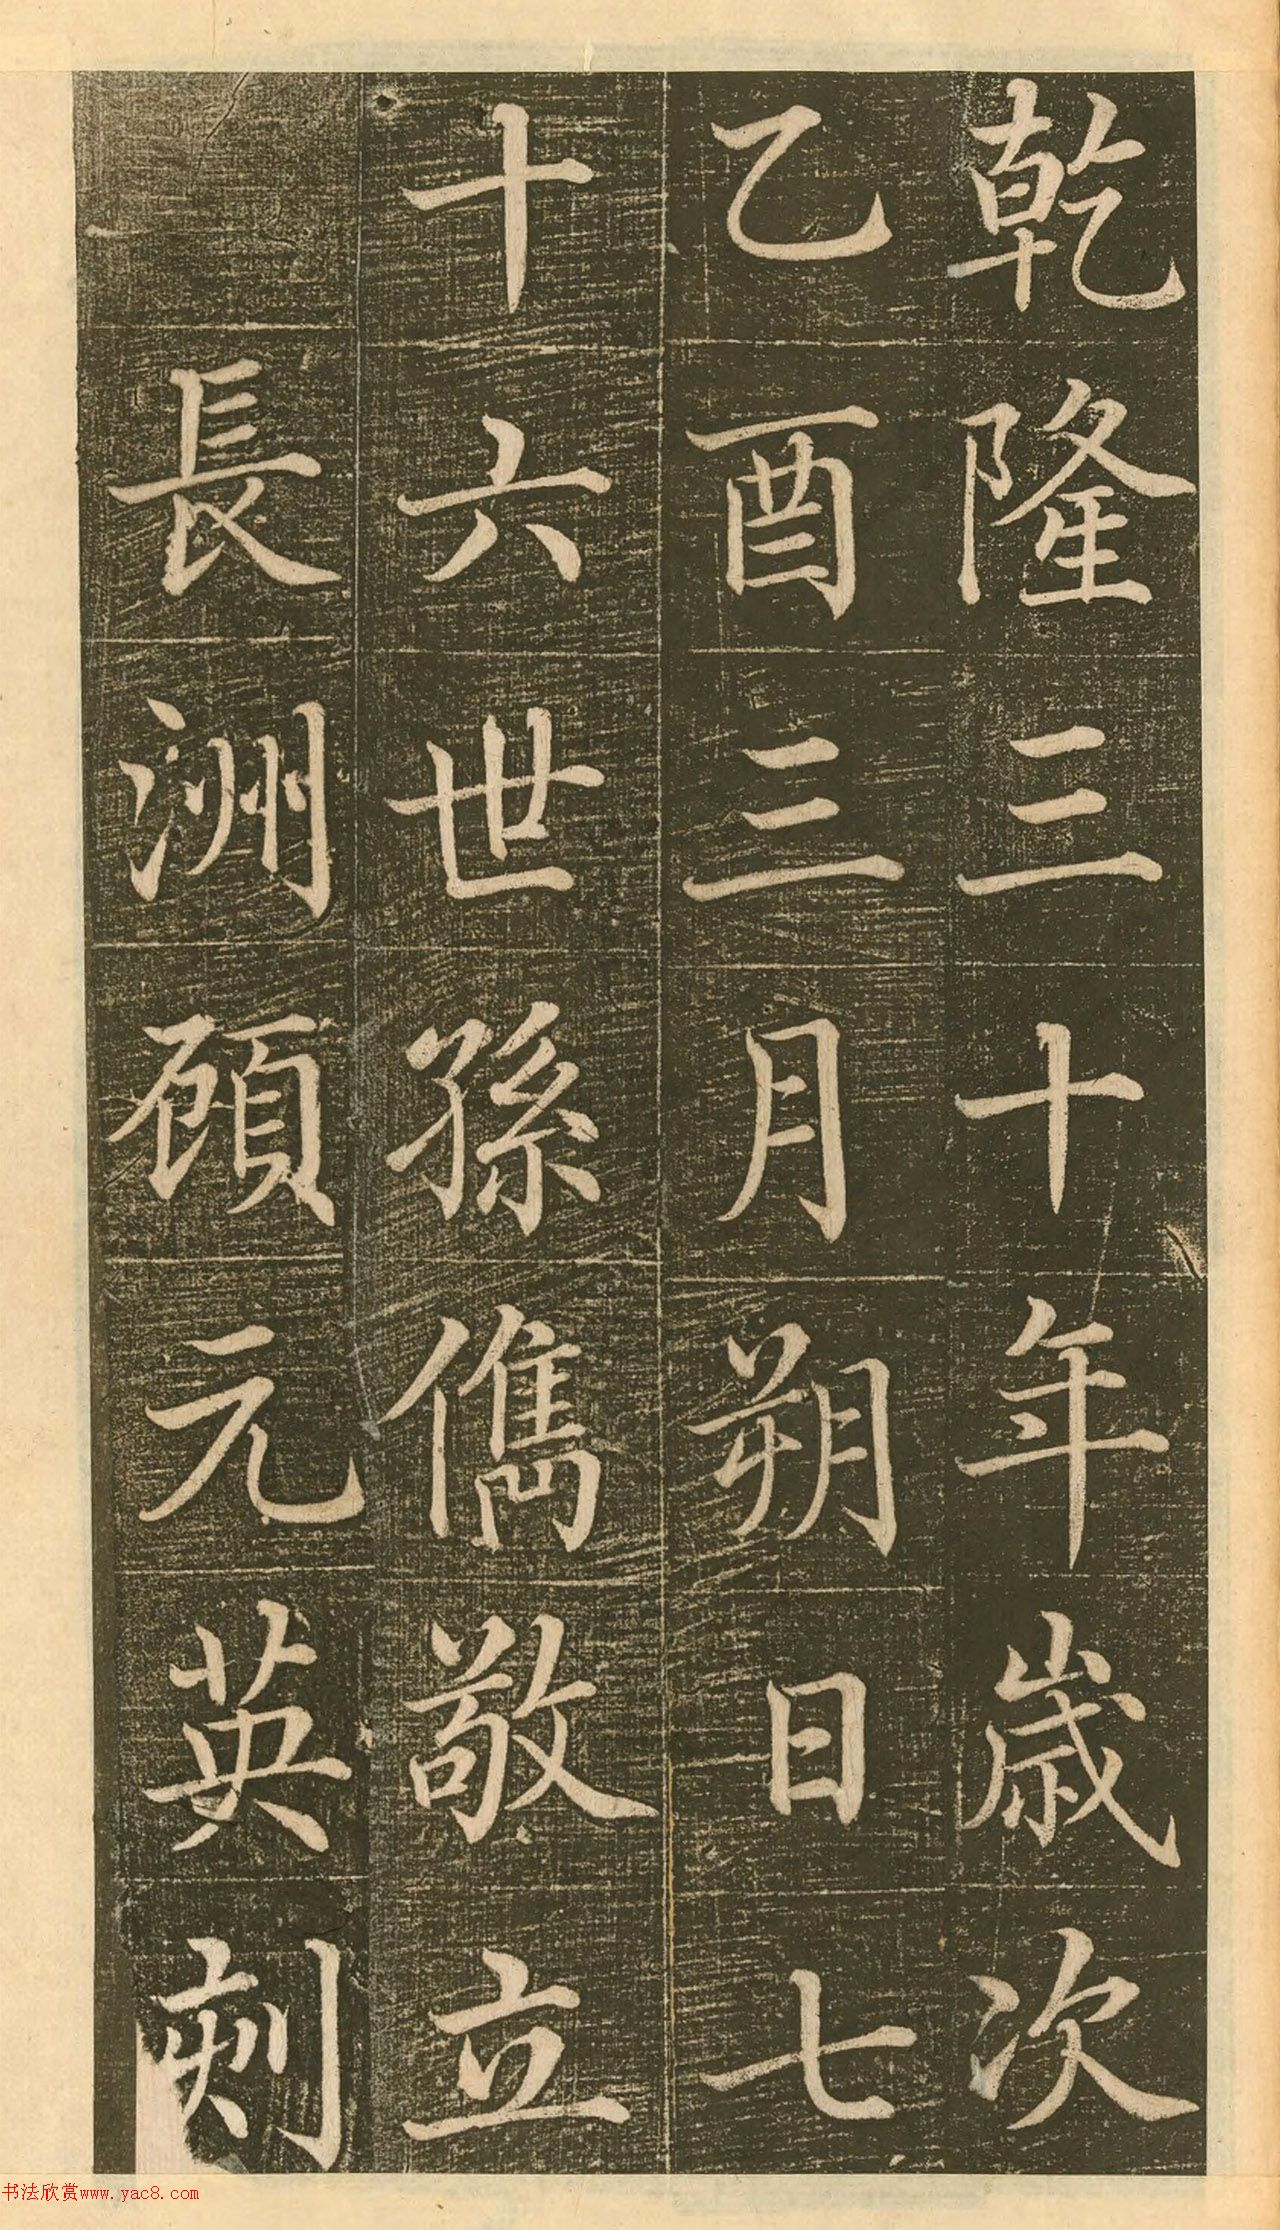 乾隆三十年歲次
乙酉三月朔日七
十六世孫儁敬立
長洲顧元英刻
书法欣赏www.yac8.com